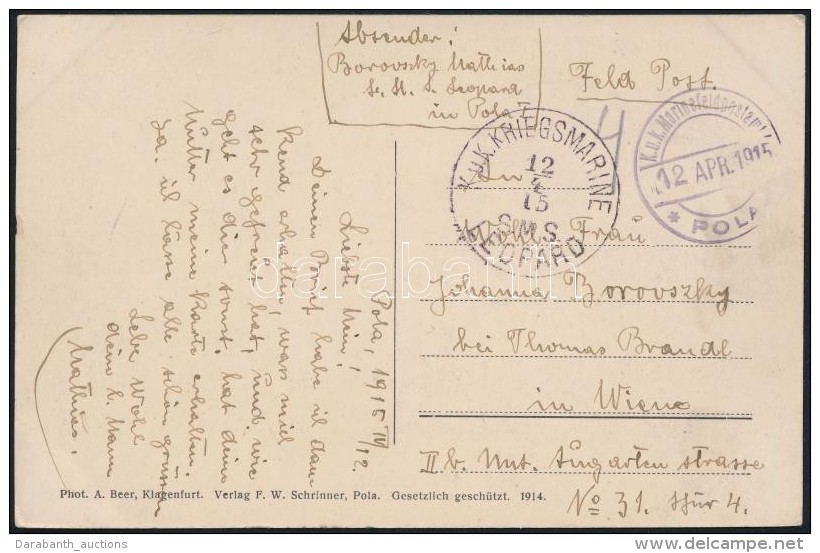 Absender:
Borovszky Mathias
S. M. S. Leopard
in Pola
Feld Post.
K.u.K. KRIEGSMARINE
12
4
15
S.M.S.
LEOPARD
K.u.k. Marinefeldpostamt
12 APR. 1915
* POLA
An
Wohl. Frau
Johanna Borovszky
bei Thomas Brandl
in Wien
II b. Unt. Augarten strasse
No 31. Thür 4.
Pola, 1915 IV/12.
Liebste Mein!
Deinen Brief habe ich dan
kend erhalten, was mich
sehr gefreut hat, und wie
geht es dir sonst, hat deine
Mutter meine Karte erhalten.
Ja. ich lasse alle schön grüssen
Lebe Wohl
dein l. Mann
Mathias.
Phot. A. Beer, Klagenfurt. Verlag F. W. Schrinner, Pola. Gesetzlich geschützt. 1914.
darabanth
Darabanth_auctions
delcampe.net